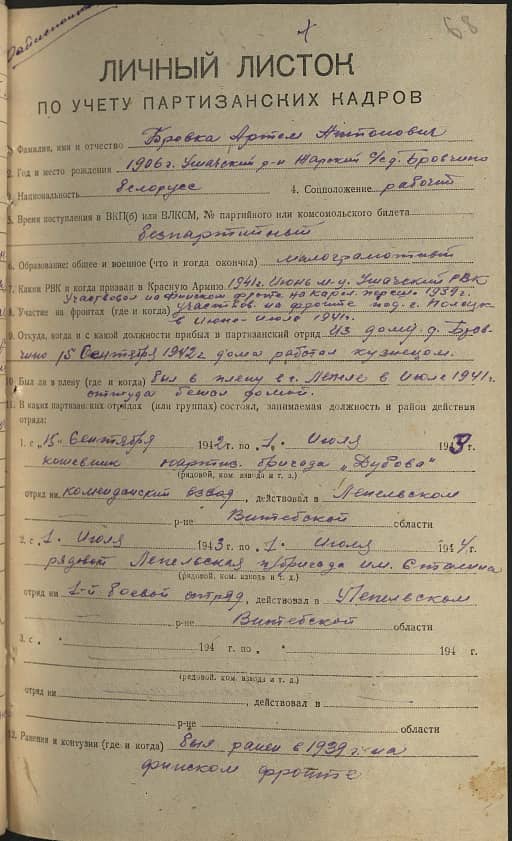 68
ЛИЧНЫЙ ЛИСТОК
ПО УЧЕТУ ПАРТИЗАНСКИХ КАДРОВ
Фамилия, имя и отчество Бровка Артем Антонович
2. Год и место рождения 1906 г. Ушачский р-н Жарский с/с д. Бровчино
Национальность белорусс 4. Соцположение рабочий
5. Время поступления в ВКП(б) или ВЛКСМ, № партийного или комсомольского билета
безпартийный
6. Образование: общее и военное (что и когда окончил) малограмотный
7. Каким РВК и когда призван в Красную Армию 1941 г. Июнь м-ц Ушачский РВК
Участвовал на финском фронте на 1939 г.
8. Участие на фронтах (где и когда) участвов. на фронте под г. Полоцк
в Июне-Июле 1941 г.
9. Откуда, когда и с какой должности прибыл в партизанский отряд Из дому д. Бров-
чино 15 Сентября 1942 г дома работал кузнецом.
10. Был ли в плену (где и когда) был в плену в г. Лепле в Июле 1941 г.
оттуда бежал домой.
11. В каких партизанских отрядах (или группах) состоял, занимаемая должность и район действия
отряда:
1. с "15" Сентября 1942 г. по "1" Июля 1943 г.
партиз. бригада "Дубова"
(рядовой, ком. взвода и т. д.)
отряд ки комендантский взвод, действовал в Лепельском
р-не Витебской области
2. с "1" Июля 1943 г. по "1" Июля 1944 г.
рядовой Лепельская п/бригада им. Сталина
(рядовой, ком. взвода и т. д.)
отряд ки 1-й боевой отряд, действовал в Лепельском
р-не Витебской области
3. с " " 194 г. по " " 194 г.
(рядовой, ком. взвода и т. д.)
отряд ки , действовал в
р-не области
12. Ранения и контузии (где и когда) был ранен в 1939 г. на
финском фронте